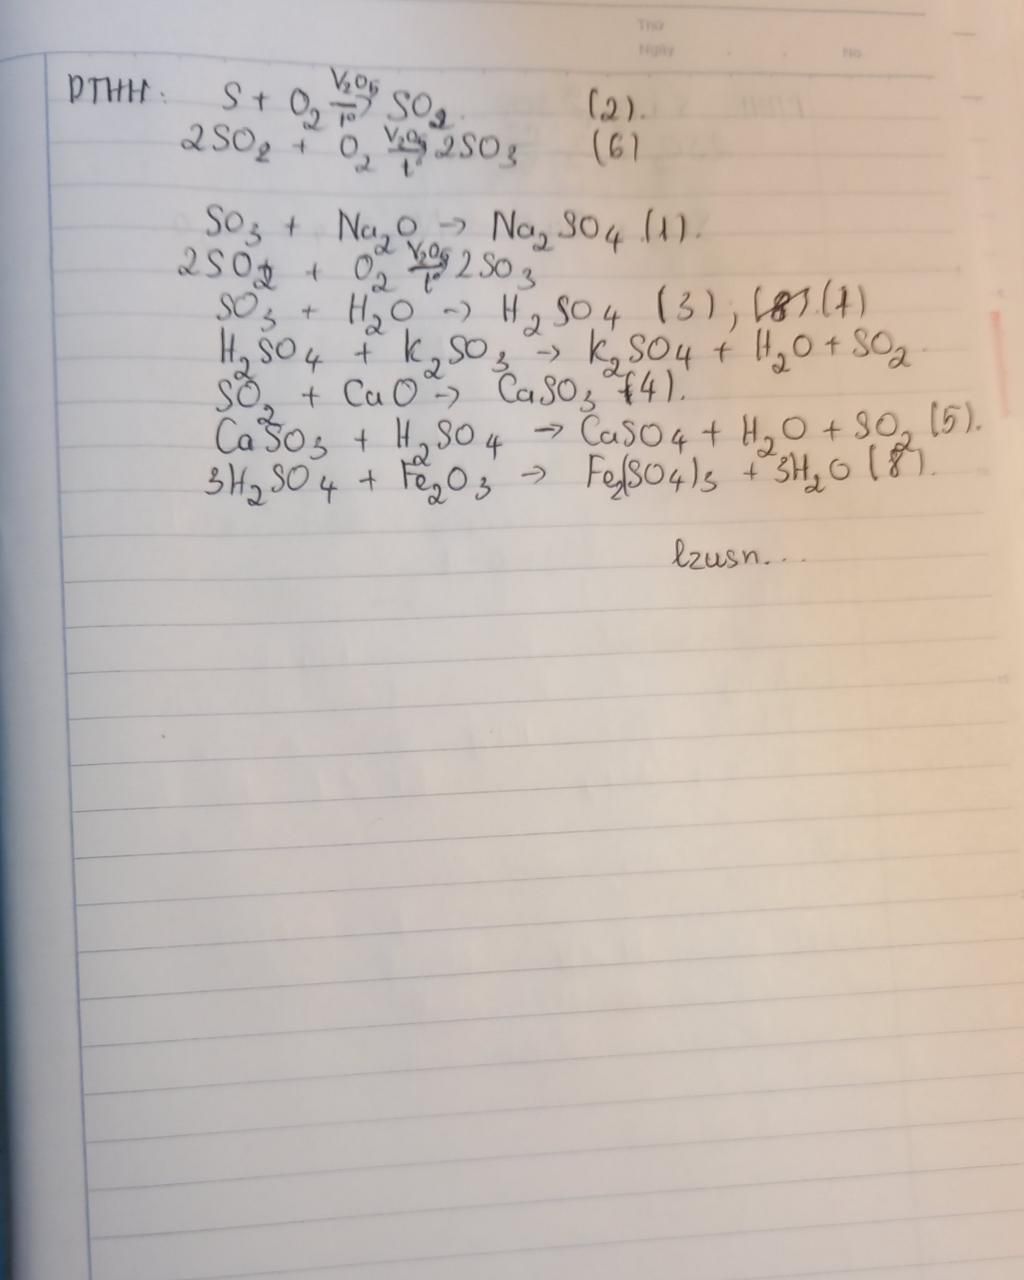 Thứ
Ngày . . No
PTHH: S + O₂ V₂O₅ → t° SO₂. (2).
2SO₂ + O₂ V₂O₅ → t° 2SO₃ (6)
SO₃ + Na₂O → Na₂SO₄ (1).
2SO₂ + O₂ V₂O₅ → t° 2SO₃
SO₃ + H₂O → H₂SO₄ (3); (7)
H₂SO₄ + K₂SO₃ → K₂SO₄ + H₂O + SO₂.
SO₂ + CaO → CaSO₃ (4).
CaSO₃ + H₂SO₄ → CaSO₄ + H₂O + SO₂ (5).
3H₂SO₄ + Fe₂O₃ → Fe₂(SO₄)₃ + 3H₂O (8).
lzusn...